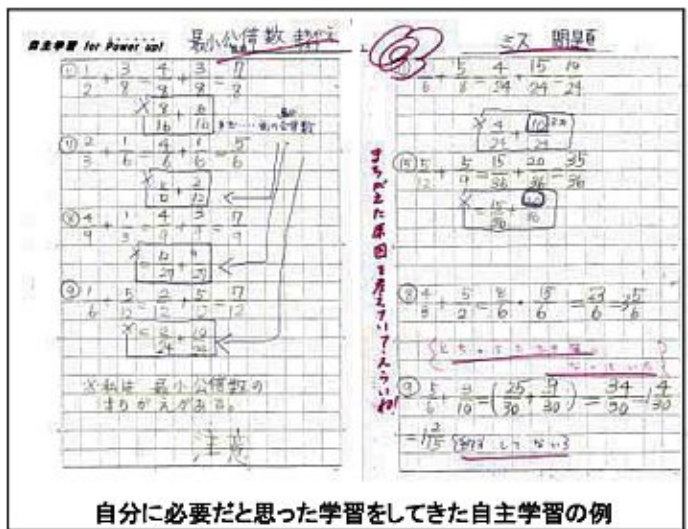 自主学習 for Power up!
最小公倍数 まちがえ
① 1/2 + 3/8 = 4/8 + 3/8 = 7/8
× 8/16 + 6/16
⑦ 2/3 + 1/6 = 4/6 + 1/6 = 5/6
④ 4/9 + 1/3 = 4/9 + 3/9 = 7/9
× = 12/27 + 9/27
③ 1/6 + 5/12 = 2/12 + 5/12 = 7/12
× = 4/24 + 10/24
※私は 最小公倍数の
まちがえがある。
注意
ミス 問題
1/6 + 5/8 = 4/24 + 15/24 = 19/24
× 4/24 + 10/24
⑮ 5/12 + 5/9 = 15/36 + 20/36 = 35/36
まちがえた原因を考えていて、えらいね!
⑧ 4/3 + 5/2 = 8/6 + 15/6 = 23/6 = 3 5/6
⑨ 5/6 + 3/10 = (25/30 + 9/30) = 34/30 = 1 4/30
= 1 2/15 (約分 してない)
自分に必要だと思った学習をしてきた自主学習の例